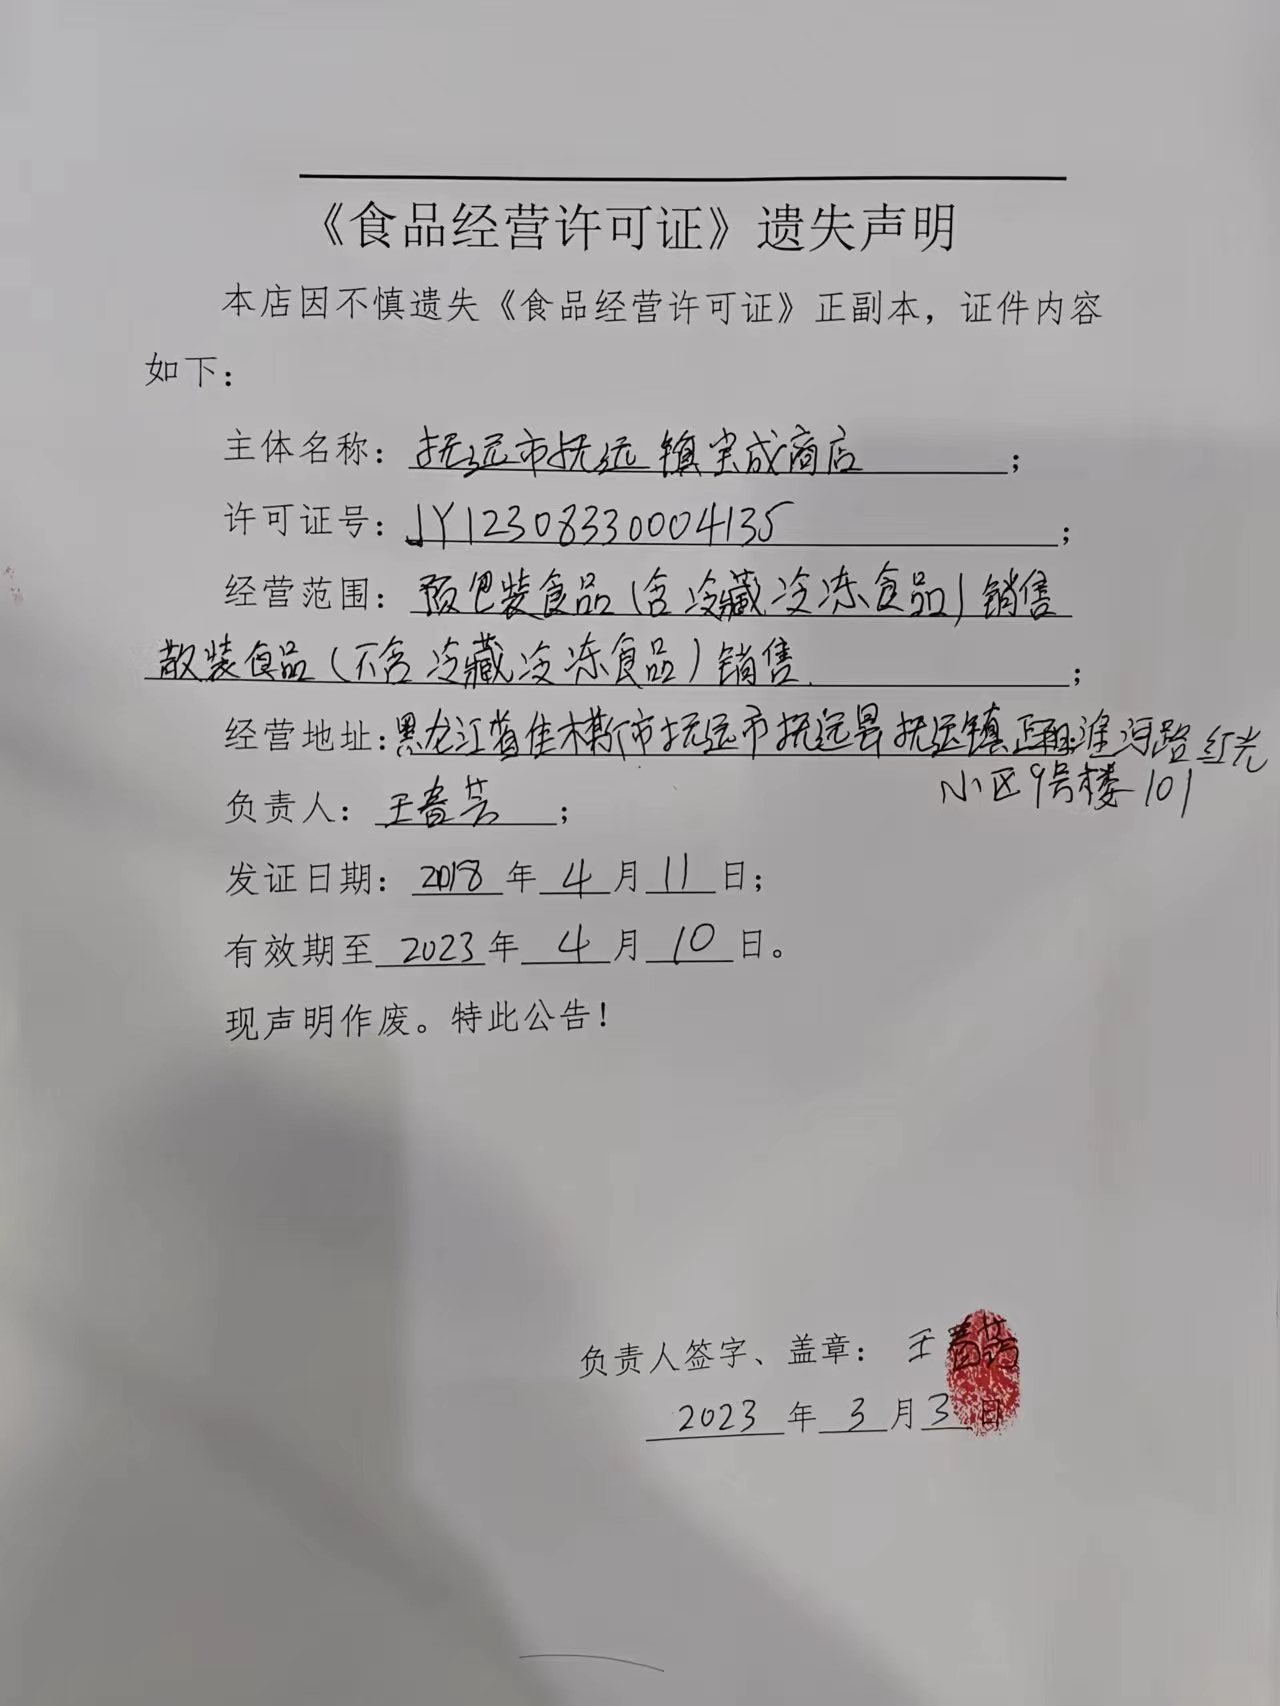 《食品经营许可证》遗失声明
本店因不慎遗失《食品经营许可证》正副本，证件内容
如下：
主体名称：抚远市抚远镇宏成商店；
许可证号：JY12308330004135；
经营范围：预包装食品（含冷藏冷冻食品）销售
散装食品（不含冷藏冷冻食品）销售；
经营地址：黑龙江省佳木斯市抚远市抚远县抚远镇正阳淮河路红光
小区9号楼101
负责人：王春芳；
发证日期：2018年4月11日；
有效期至2023年4月10日。
现声明作废。特此公告！
负责人签字、盖章：王
2023年3月3日